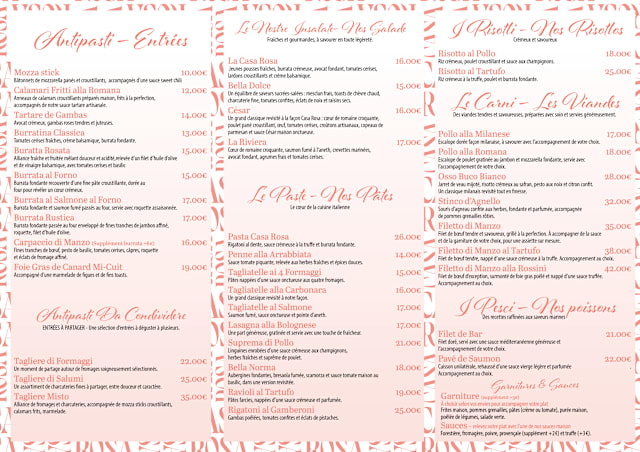 Antipasti – Entrées
Mozza stick 10.00€
Bâtonnets de mozzarella panés et croustillants, accompagnés d'une sauce sweet chili
Calamari Fritti alla Romana 12,00€
Anneaux de calamars croustillants préparés maison, frits à la perfection,
accompagnés de notre sauce tartare artisanale.
Tartare de Gambas 14,00€
Avocat crémeux, gambas roses tendres et juteuses.
Burratina Classica 13,00€
Tomates cerises fraîches, crème balsamique, burrata fondante.
Buratta Rosata 15,00€
Alliance fraîche et huître mêlant douceur et acidité, relevée d'un filet d'huile d'olive
et de vinaigre balsamique, avec tomates cerises et basilic
Burrata al Forno 15,00€
Burrata fondante recouverte d'une fine pâte croustillante, dorée au
four pour révéler un cœur crémeux.
Burrata al Salmone al Forno 17,00€
Burrata fondante et saumon fumé passés au four, servie avec roquette assaisonnée.
Burrata Rustica 17,00€
Burrata fondante passée au four enveloppé de fines tranches de jambon affiné,
roquette, filet d'huile d'olive.
Carpaccio di Manzo (Supplément burrata +6€) 16.00€
Fines tranches de bœuf, pesto de basilic, tomates cerises, câpres, roquette
et éclats de fromage affiné.
Foie Gras de Canard Mi-Cuit 19,00€
Accompagné d'une marmelade de figues et de fins toasts.
Antipasti Da Condividere
ENTRÉES À PARTAGER - Une sélection d'entrées à déguster à plusieurs.
Tagliere di Formaggi 22.00€
Un moment de partage autour de fromages soigneusement sélectionnés.
Tagliere di Salumi 25.00€
Un assortiment de charcuteries fines à partager, entre douceur et caractère.
Tagliere Misto 35.00€
Alliance de fromages et charcuteries, accompagnée de mozza sticks croustillants,
calamars frits, marmelade.
Le Nostre Insalate – Nos Salade
Fraîches et gourmandes, à savourer en toute légèreté.
La Casa Rosa 16.00€
Jeunes pousses fraîches, burrata crémeuse, avocat fondant, tomates cerises,
lardons croustillants et crème balsamique.
Bella Dolce 15.00€
Un équilibre de saveurs sucrées-salées : mesclun frais, toasts de chèvre chaud,
charcuterie fine, tomates confites, éclats de noix et raisins secs.
César 16.00€
Un grand classique revisité à la façon Casa Rosa : cœur de romaine croquante,
poulet pané croustillant, œuf, tomates cerises, croûtons artisanaux, copeaux de
parmesan et sauce César maison onctueuse.
La Riviera 17,00€
Cœur de romaine croquante, saumon fumé à l'aneth, crevettes marinées,
avocat fondant, agrumes frais et tomates cerises.
Le Paste – Nos Pâtes
Le cœur de la cuisine italienne
Pasta Casa Rosa 26.00€
Rigatoni al dente, sauce crémeuse à la truffe et burrata fondante.
Penne alla Arrabbiata 14.00€
Sauce tomate piquante, relevée aux herbes fraîches et épices douces.
Tagliatelle ai 4 Formaggi 15.00€
Pâtes nappées d'une sauce onctueuse aux quatre fromages.
Tagliatelle alla Carbonara 16.00€
Un grand classique revisité à notre façon.
Tagliatelle al Salmone 17.00€
Saumon fumé, sauce onctueuse et pointe d'aneth.
Lasagna alla Bolognese 17.00€
Une part généreuse, gratinée et servie avec une touche de fraîcheur.
Suprema di Pollo 21.00€
Linguines enrobées d'une sauce crémeuse aux champignons,
herbes fraîches et suprême de poulet.
Bella Norma 18.00€
Aubergines fondantes, bresaola fumée, scamorza et sauce tomate maison au
basilic, dans une version revisitée.
Ravioli al Tartufo 19.00€
Pâtes farcies, nappées d'une sauce crémeuse et parfumée.
Rigatoni al Gamberoni 25,00€
Gambas poêlées, tomates confites et éclats de pistaches.
I Risotti – Nos Risottos
Crémeux et savoureux
Risotto al Pollo 18.00€
Riz crémeux, poulet croustillant et sauce aux champignons.
Risotto al Tartufo 25.00€
Riz crémeux à la truffe, poulet et burrata fondante.
Le Carni – Les Viandes
Des viandes tendres et savoureuses, préparées avec soin et servies généreusement.
Pollo alla Milanese 17.00€
Escalope dorée façon milanaise, à savourer avec l'accompagnement de votre choix.
Pollo alla Romana 18.00€
Escalope de poulet gratinée au jambon et mozzarella fondante, servie avec
l'accompagnement de votre choix.
Osso Buco Bianco 28.00€
Jarret de veau mijoté, risotto crémeux au safran, pesto aux noix et citron confit.
Un classique milanais revisité tout en finesse.
Stinco d'Agnello 32.00€
Souris d'agneau confite aux herbes, fondante et parfumée, accompagnée
de pommes grenailles rôties.
Filetto di Manzo 35.00€
Filet de bœuf tendre et savoureux, grillé à la perfection. À accompagner de la sauce
et de la garniture de votre choix, pour une assiette sur mesure.
Filetto di Manzo al Tartufo 38.00€
Filet de bœuf tendre, nappé d'une sauce crémeuse à la truffe. Accompagnement au choix.
Filetto di Manzo alla Rossini 42.00€
Filet de bœuf d'exception, surmonté de foie gras poêlé et nappé d'une sauce truffée.
Accompagnement au choix.
I Pesci – Nos poissons
Des recettes raffinées aux saveurs marines
Filet de Bar 21.00€
Filet doré, servi avec une sauce méditerranéenne généreuse et
l'accompagnement de votre choix.
Pavé de Saumon 22.00€
Cuisson unilatérale, rehaussé d'une sauce vierge légère et parfumée
Accompagnement au choix.
Garnitures & Sauces
Garniture
À choisir selon vos envies pour accompagner votre plat
Frites maison, pommes grenailles, pâtes (crème ou tomate), purée maison,
poêlée de légumes, salade verte.
Sauces – relevez votre plat avec l'une de nos sauces maison
Forestière, fromagère, poivre, provençale (supplément +2€) et truffe (+3€).